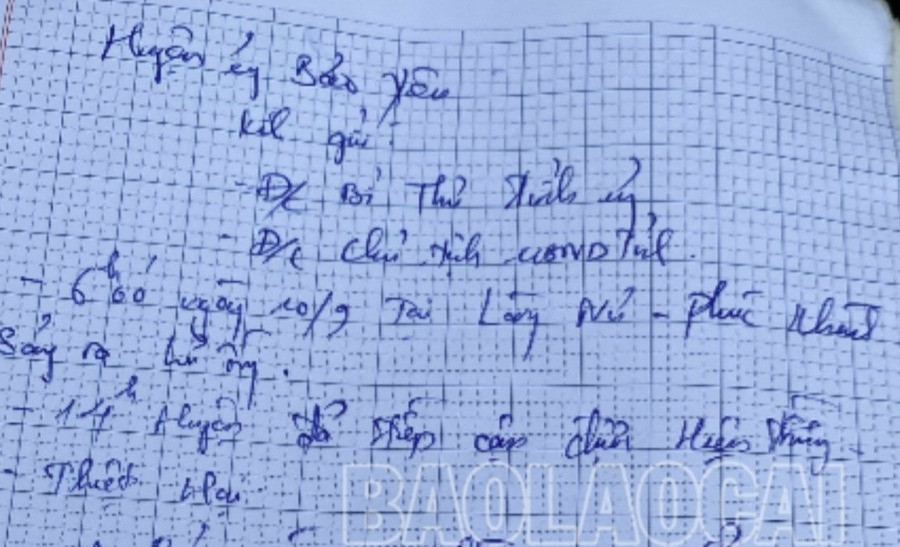 Huyện ủy Bảo Yên
Kính gửi:
- Đ/c Bí Thư Tỉnh ủy
- Đ/c Chủ tịch UBND Tỉnh.
- 6h00 ngày 10/9 Tại Làng Nủ - Phúc Khánh
Xảy ra lũ ống.
- 14h Huyện đã tiếp cận được Hiện trường.
- Thiệt hại
BAOLAOCAI